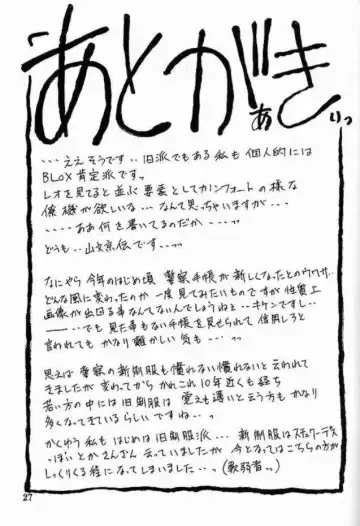 あとがき
ぁ
りっ
・・・ええそうです・・旧派でもある私も個人的には
BLOX肯定派ですっ
レオを見てると並ぶ要素としてカノンフォートの様な
僚機が欲しいな・・・なんて思っちゃいますが・・・
・・・・・ああ何を書いてるのだか・・・・っっ
どうも・・山文京伝です・・・っっ
なにやら今年のはじめ頃 警察手帳が新しくなったとのウワサ・・
どんな風に変わったのか一度見てみたいものですが性質上
画像が出回る事なんてないんでしょうねぇ・・キケンですし・・
―――・・でも見た事もない手帳を見せられて信用しろと
言われてもかなり難かしい気も・・・っっ
思えば警察の新制服も慣れない慣れないと云われて
きましたが変わってからかれこれ10年近くも経ち
若い方の中には旧制服は覚えも遠いと云う方もかなり
多くなってきているらしいですね・・っ
かくゆう私もはじめは旧制服派・・・新制服はスチュワーデス
っぽいとかさんざん云っていましたが今となってはこちらの方が
しっくりくる程になってしまいました・・・っ(軟弱者っっ)
27